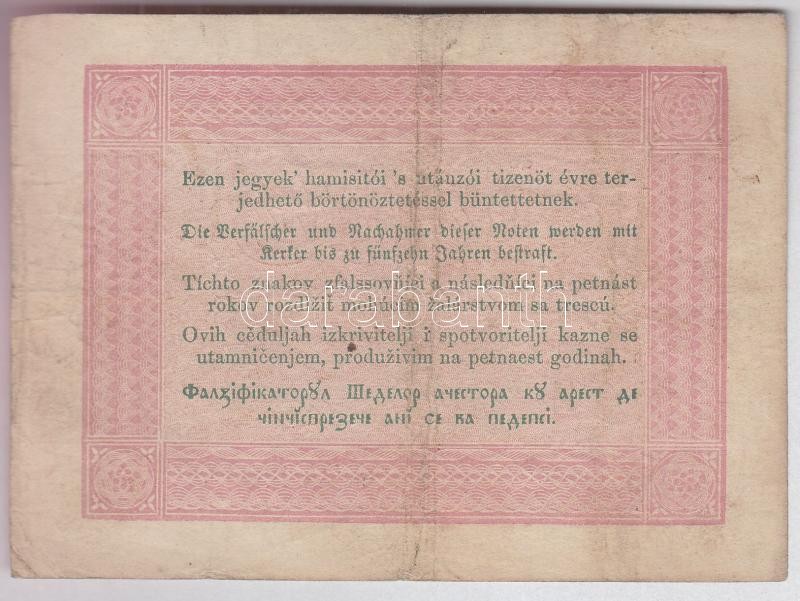 Ezen jegyek' hamisitói 's utánzói tizenöt évre ter-
jedhető börtönöztetéssel büntettetnek.
Die Verfälscher und Nachahmer dieser Noten werden mit
Kerker bis zu fünfzehn Jahren bestraft.
Tíchto znakov zfalssovňjci a následňjci na petnást
rokov rozdlžit mohúcim žalárstvom sa trescú.
Ovih cěduljah izkrivitelji i spotvoritelji kazne se
utamničenjem, produživim na petnaest godinah.
Фалꙁіфікаторꙋл Шеделор ачестора кꙋ арест де
чінчіспреꙁече ані се ва педепсі.
darabanth